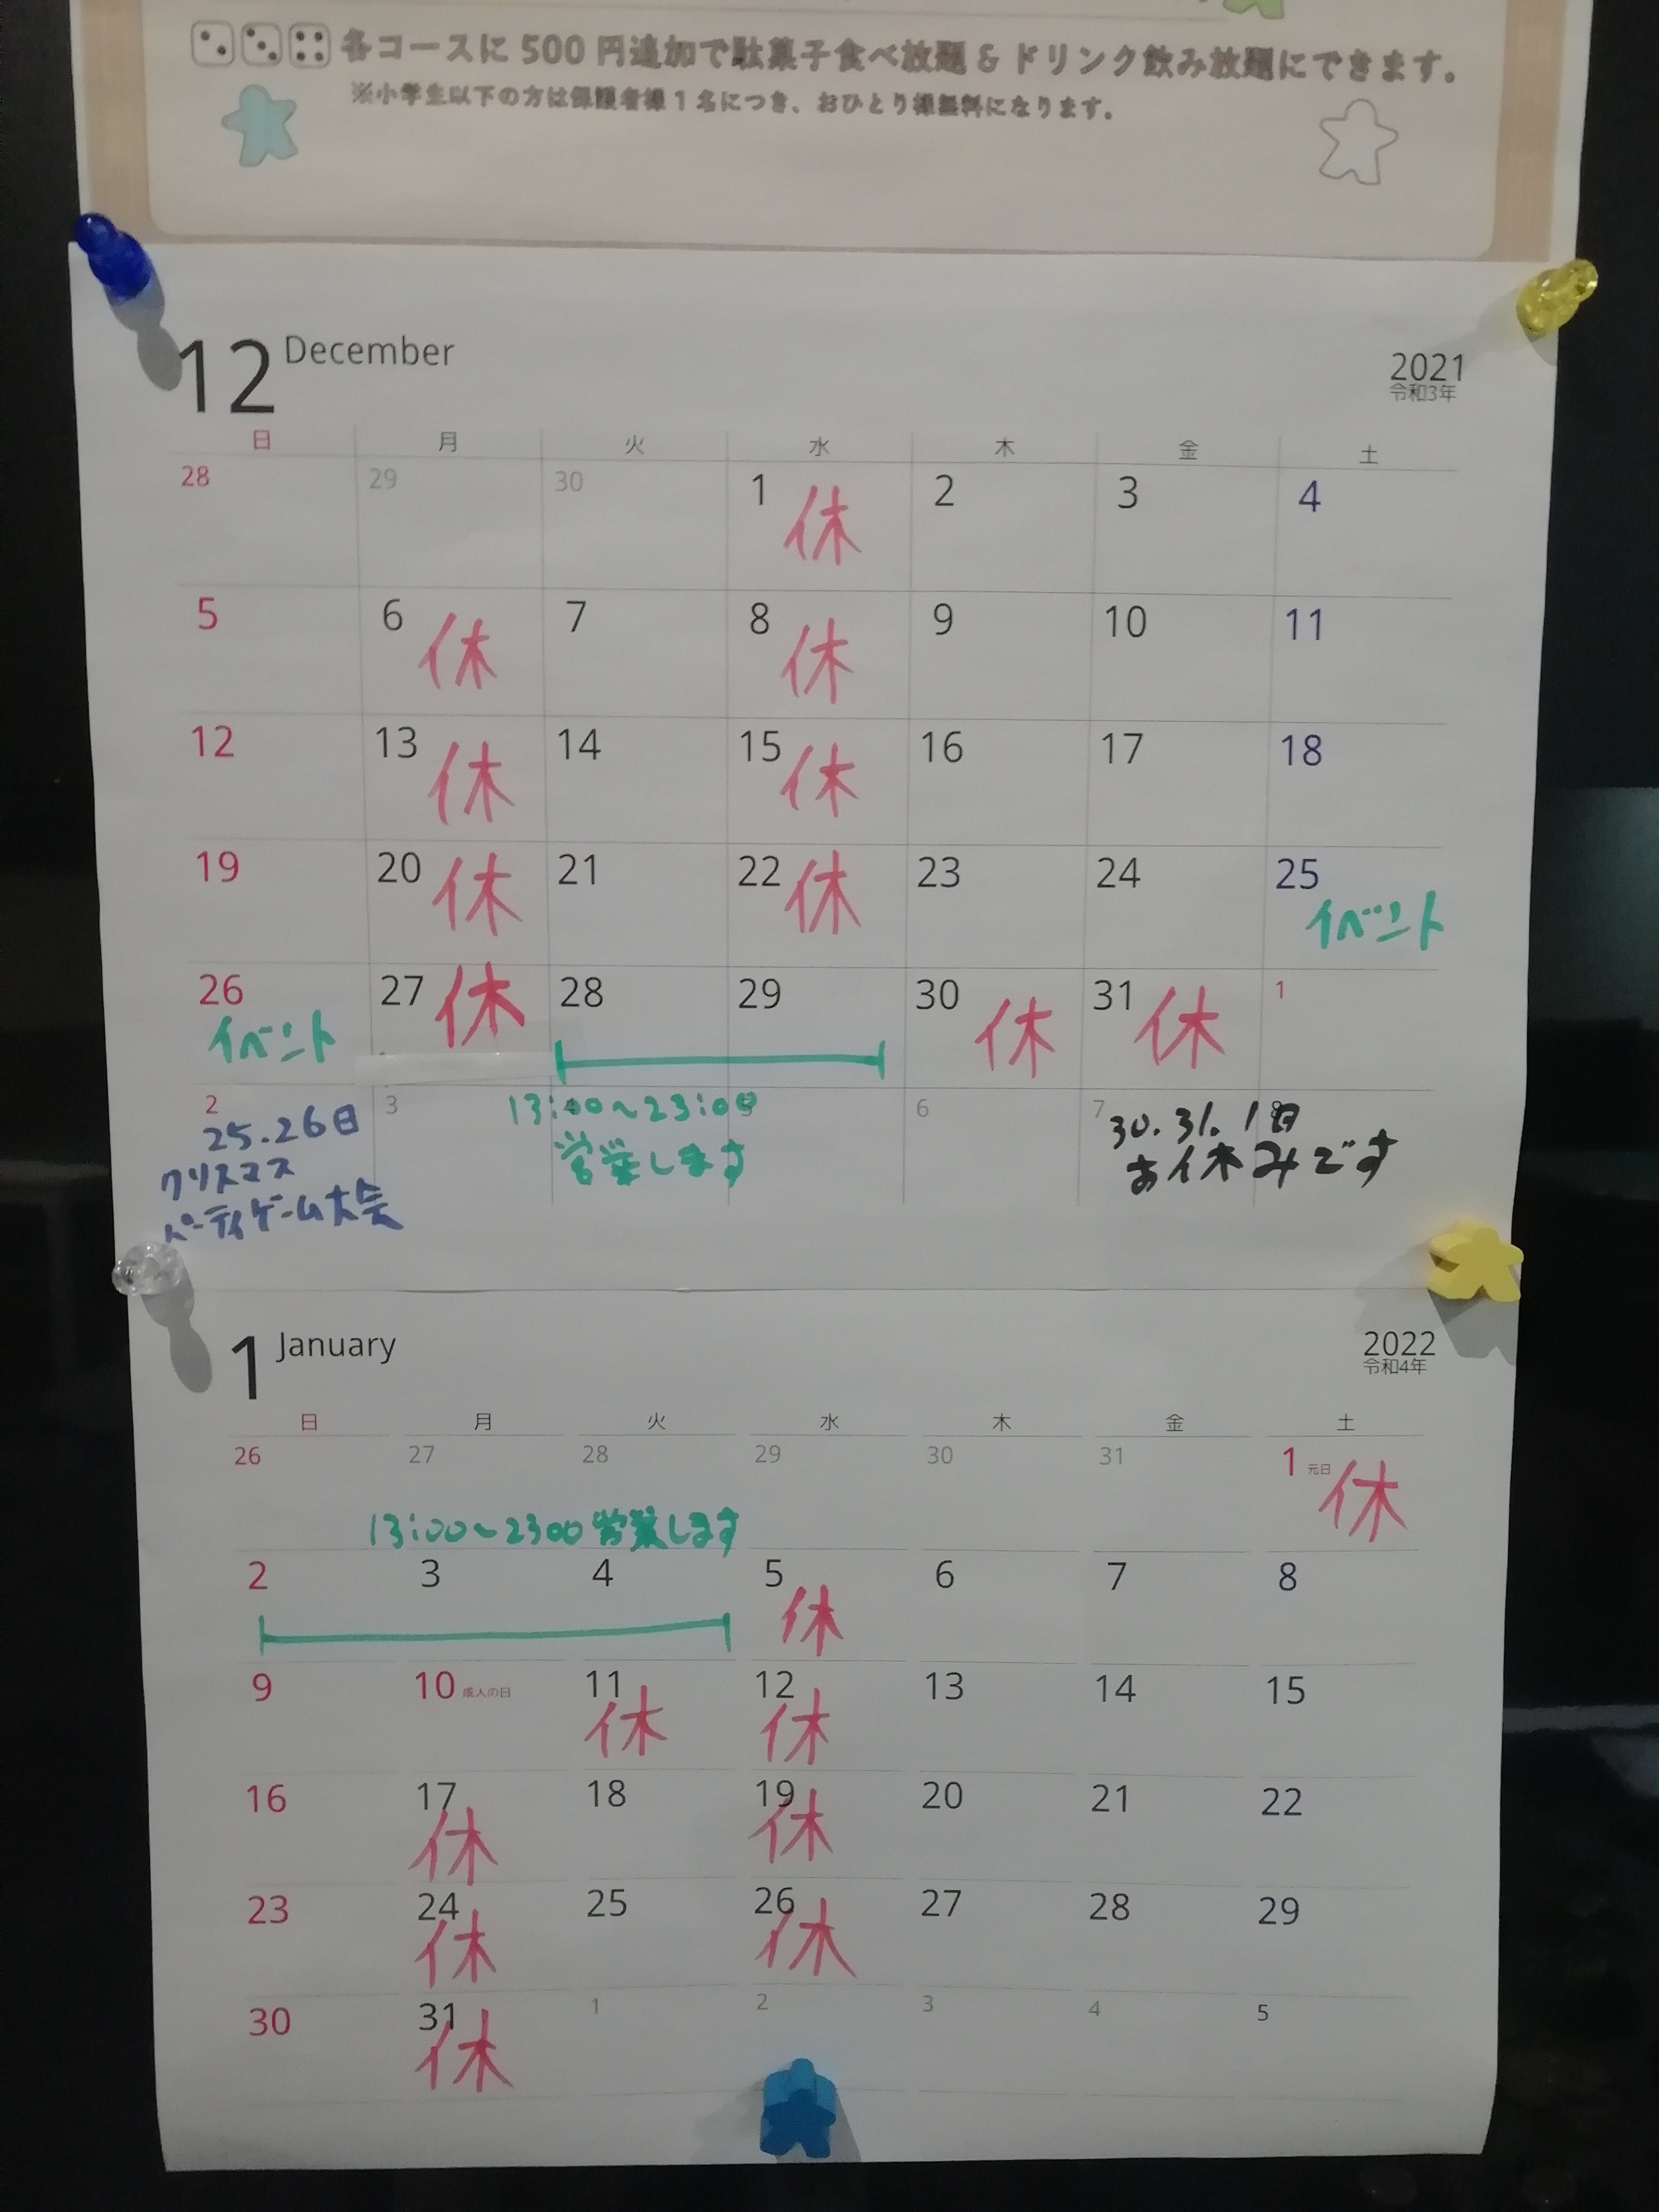 各コースに 500 円追加で駄菓子食べ放題 & ドリンク飲み放題にできます。
※小学生以下の方は保護者様 1 名につき、おひとり様無料になります。
12 December
2021
令和3年
日 月 火 水 木 金 土
28 29 30 1 休 2 3 4
5 6 休 7 8 休 9 10 11
12 13 休 14 15 休 16 17 18
19 20 休 21 22 休 23 24 25 イベント
26 イベント 27 休 28 29 30 休 31 休 1
2 3 6 7
13:00〜23:00
営業します
25.26日
クリスマス
パーティゲーム大会
30.31.1日
お休みです
1 January
2022
令和4年
日 月 火 水 木 金 土
26 27 28 29 30 31 1 元日 休
13:00〜2300 営業します
2 3 4 5 休 6 7 8
9 10 成人の日 11 休 12 休 13 14 15
16 17 休 18 19 休 20 21 22
23 24 休 25 26 休 27 28 29
30 31 休 1 2 3 4 5